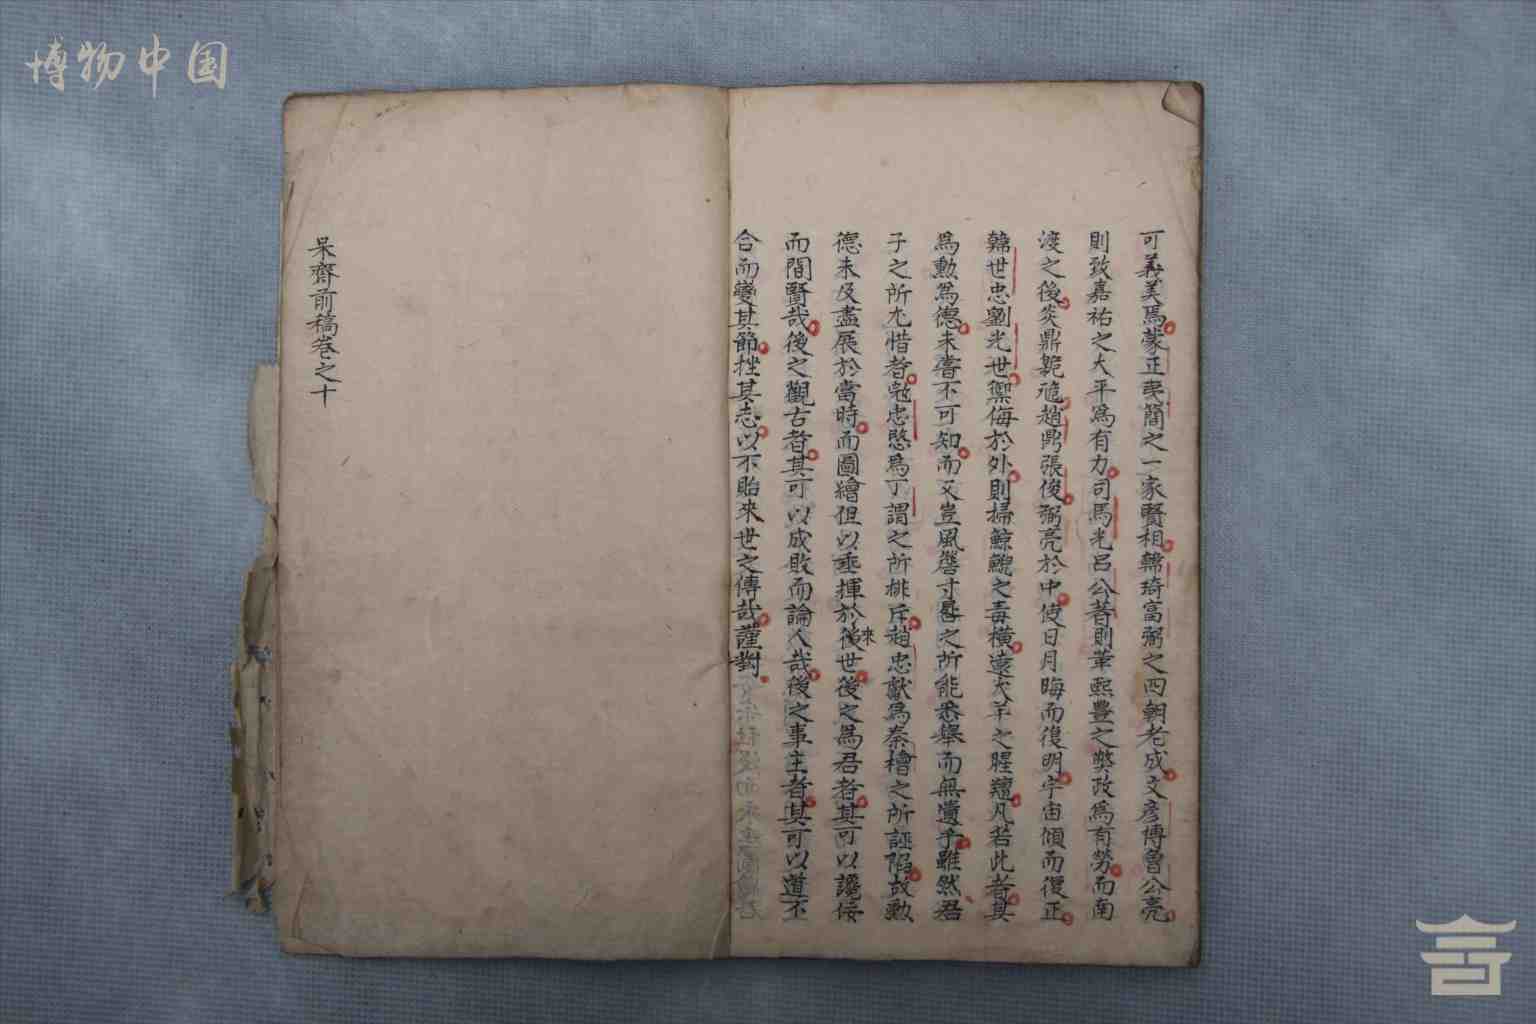 博物中国
可義美焉蒙正夷簡之一家賢相韓琦富弼之四朝老成文彥博曾公亮
則致嘉祐之大平為有力司馬光呂公著則革熙豐之弊政為有勞而南
渡之後炎鼎甈卼趙鼎張俊弼亮於中使日月晦而復明宇宙傾而復正
韓世忠劉光世禦侮於外則掃鯨鯢之毒橫遠犬羊之腥羶凡若此者其
為勳為德未嘗不可知而又豈風簷寸晷之所能悉舉而無遺乎雖然君
子之所尤惜者勉忠愍為丁謂之所排斥趙忠獻為秦檜之所誣陷故勳
德未及盡展於當時而圖繪但以垂揮於後來世後之為君者其可以讒佞
而間賢哉後之觀古者其可以成敗而論人哉後之事主者其可以道不
合而變其節挫其志以不貽來世之傳哉謹對
呆齋前稿卷之十